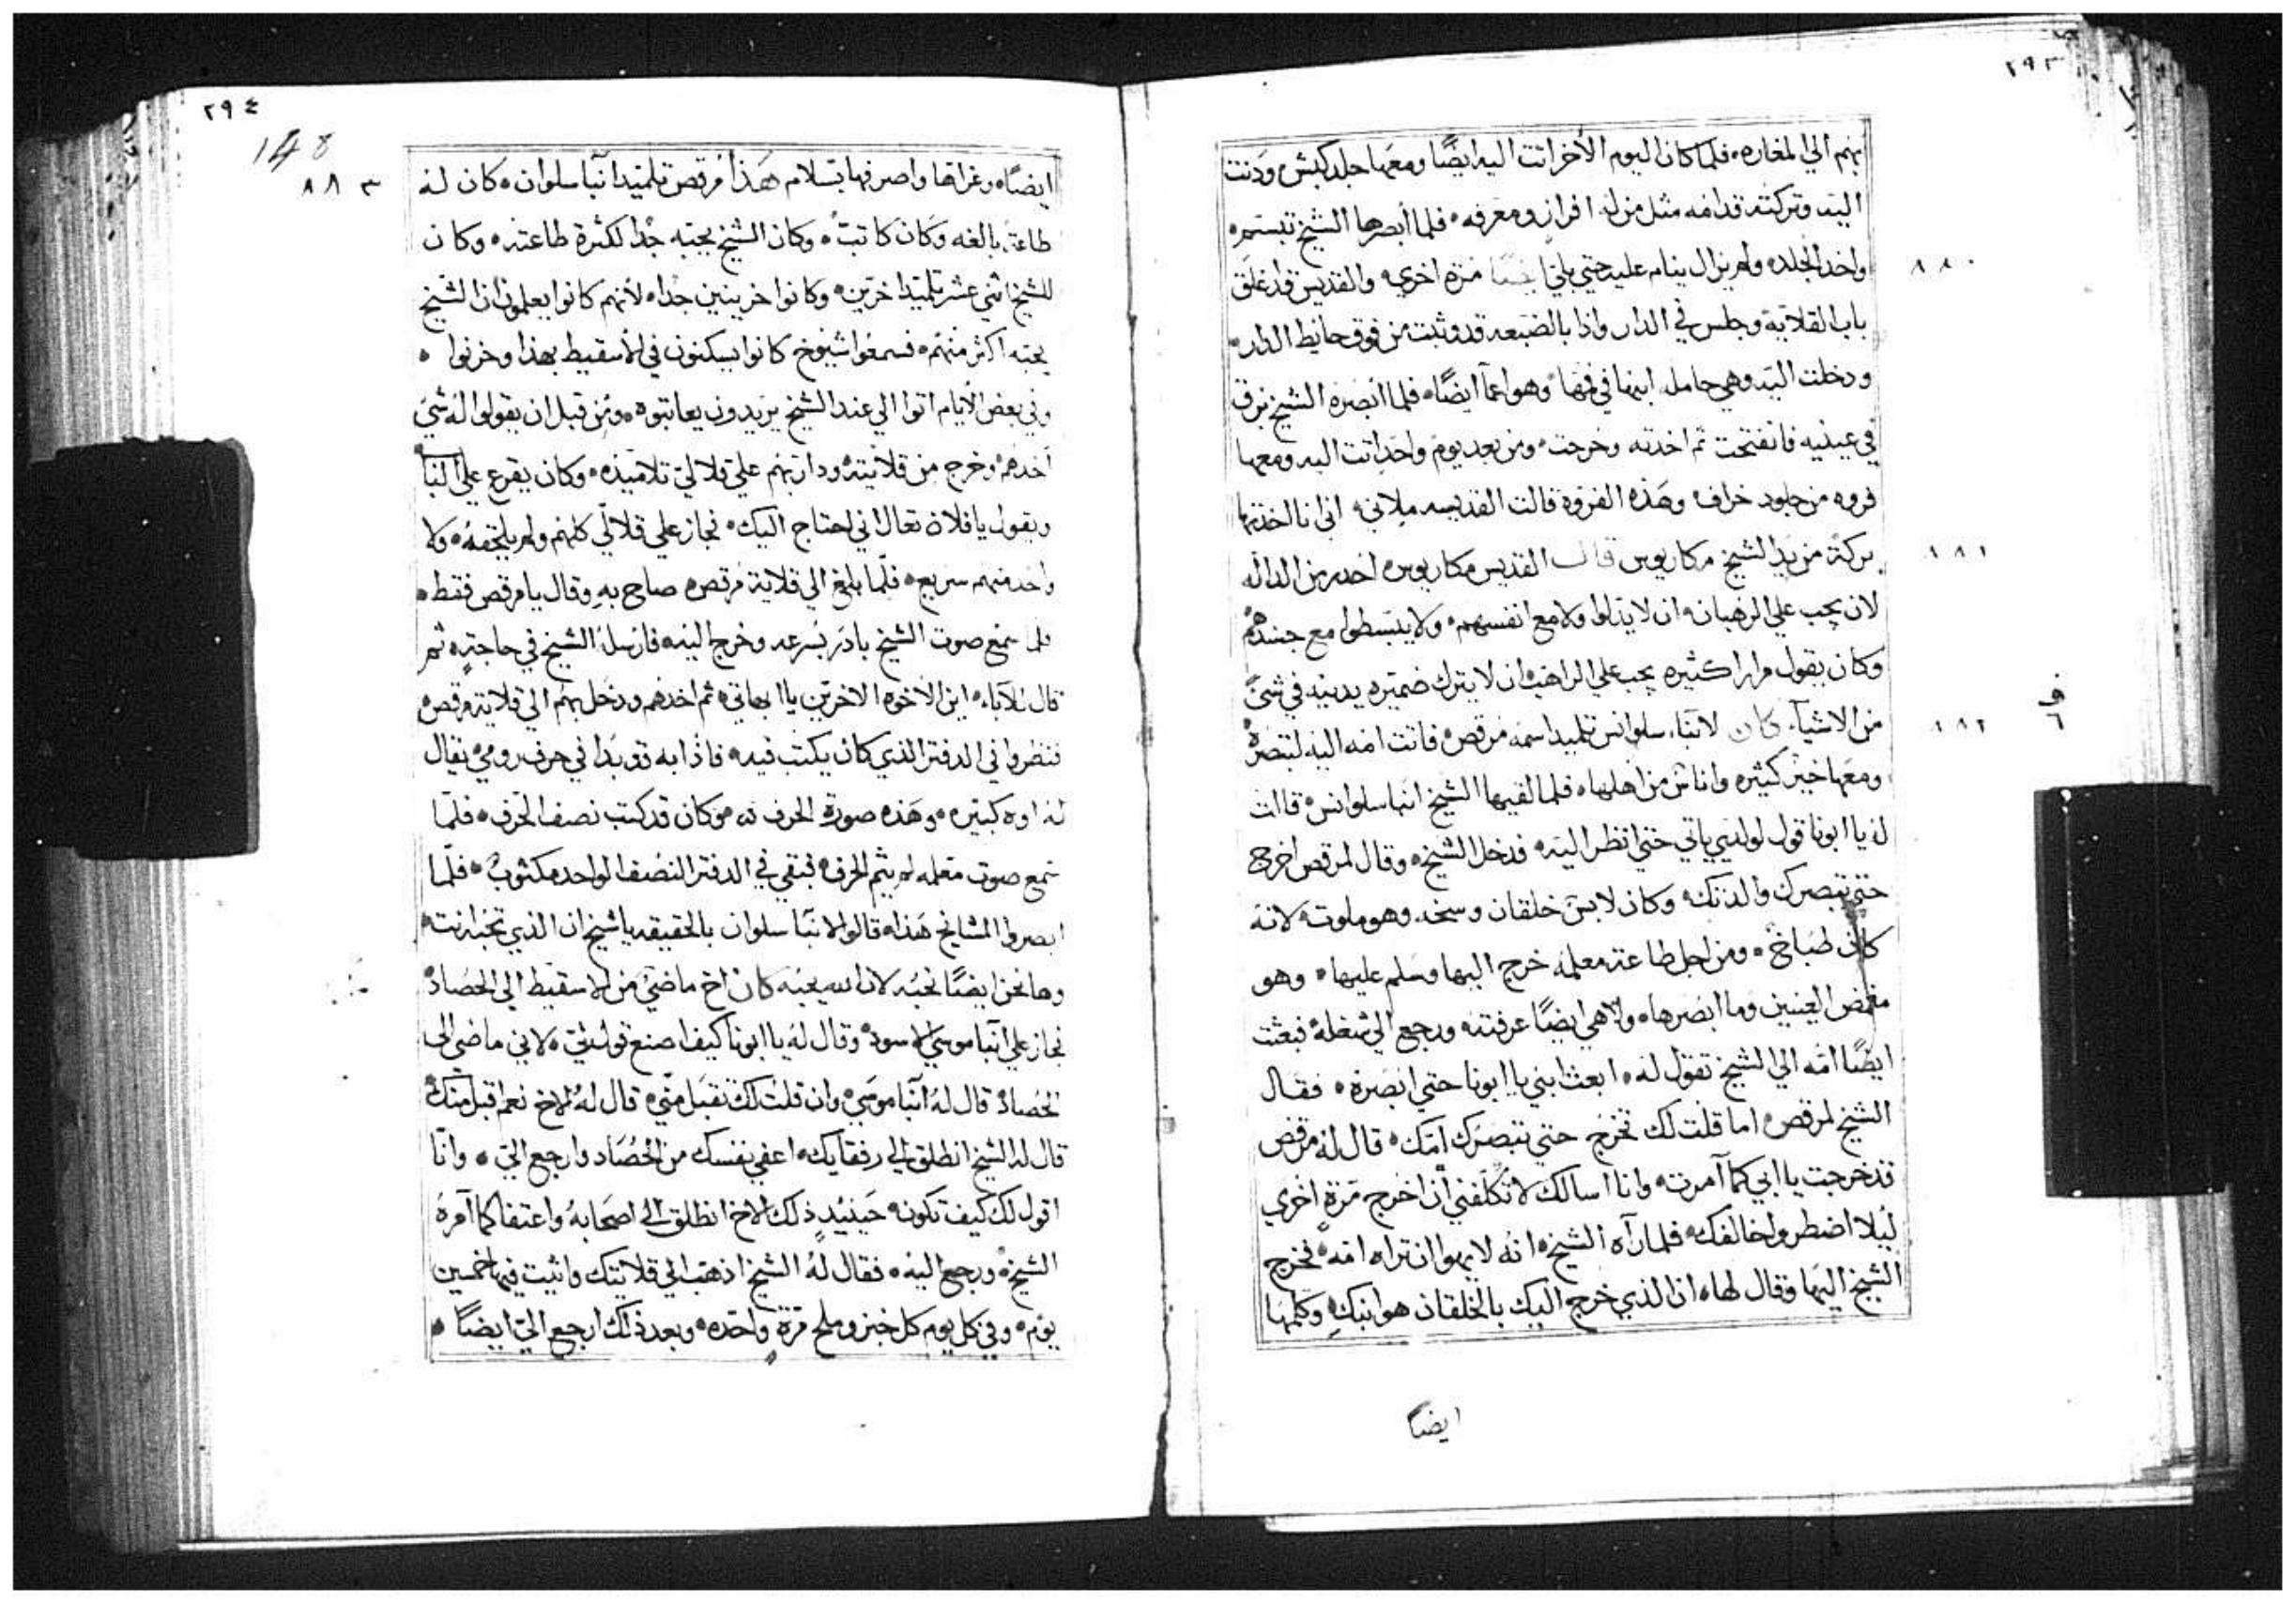 ٢٩٣
بهم الي المغاره ٠ فلما كان اليوم الأخر اتت اليه ايضًا ومعها جلد كبش ودنت
اليه وتركته قدامه مثل من له افراز ومعرفه ٠ فلما أبصرها الشيخ تبسم ٠
واخد الجلد ٠ ولم يزال ينام عليه حتي بلي ايضًا مرة اخري ٠ والقديس قد غلق
٨٨٠
باب القلاية وجلس في الدار واذا بالضبعه قد وثبت من فوق حايط الدار ٠
ودخلت اليه وهي حامله ابنها في فمها ٠ وهو اعمآ ايضًا ٠ فلما أبصره الشيخ بزق
في عينيه فانفتحت ثم اخدته وخرجت ٠ ومن بعد يوم واحد اتت اليه ومعها
فروه من جلود خراف ٠ وهذه الفروة قالت القديسه ملاني ٠ اني انا اخذتها
بركة من يد الشيخ مكاريوس قال القديس مكاريوس ٠ احدر من الداله
٨٨١
لان يجب علي الرهبان ٠ ان لا يدلوا ولا مع انفسهم ٠ ولا ينبسطوا مع جسدهم
وكان يقول مرارا كثيره يجب علي الراهب ان لا يترك ضميره يدينه في شئً
من الاشيآء كان لانبا سلوانس تلميد اسمه مرقص ٠ فاتت امه اليه لتبصره
٨٨٢
ومعها خير كثيره واناس من اهلها ٠ فلما لقيها الشيخ انبا سلوانس قالت
له يا ابونا قول لولدي ياتي حتي انظر اليه ٠ فدخل الشيخ ٠ وقال لمرقص اخرج
حتي تبصرك والدتك ٠ وكان لابس خلقان وسخه وهو ملوت ٠ لانه
كان طباخ ٠ ومن اجل طاعته معلمه خرج اليها وسلم عليها ٠ وهو
مغمض العينين وما ابصرها ٠ ولا هي ايضًا عرفته ورجع الي شغله ٠ فبعثت
ايضًا امه الي الشيخ تقول له ٠ ابعث ابني يا ابونا حتي ابصره ٠ فقال
الشيخ لمرقص ٠ اما قلت لك تخرج حتي تبصرك امك ٠ قال له مرقص
قد خرجت يا ابي كما آمرت ٠ وانا اسالك لا تكلفني أن اخرج مرةٍ اخري
ليلا اضطر واخالفك ٠ فلما رآه الشيخ ٠ انه لا يهوا ان تراه امه ٠ فخرج
الشيخ اليها وقال لها ٠ ان الذي خرج اليك بالخلقان هو ابنكِ وكلمها
ايضًا
٢٩٤
148
ايضًا ٠ وعزاها واصرفها بسلام هَذا مُرقص تلميد أنبا سلوان ٠ كان له
٨٨٣
طاعة بالغه وَكَان كاتب ٠ وكان الشيخ يحبه جدًا لكثرة طاعته ٠ وكان
للشيخ اثني عشر تلميد اخرين ٠ وكانوا حزينين جدا ٠ لأنهم كانوا يعلمون ان الشيخ
يحبه اكثر منهم ٠ فسمعوا شيوخ كانوا يسكنون في الأسقيط بهذا وحزنوا ٠
وفي بعض الأيام اتوا الي عند الشيخ يريدون يعاتبوه ٠ ومن قبل ان يقولوا له شئ
أخدهم وخرج من قلايته ٠ ودار بهم علي قلالي تلاميذه ٠ وكان يقرع علي الباب
ويقول يا فلان تعال اني احتاج اليك ٠ فجاز علي قلالي كلهم ولم يلحقه ٠ ولا
واحد منهم سريع ٠ فلما بلغ الي قلاية مرقص ٠ صاح به وقال يا مرقص فقط ٠
فلما سمع صوت الشيخ بادر بسرعه وخرج اليه ٠ فارسله الشيخ في حاجته ثم
قال للآباء ٠ اين الأخوه الاخرين يا ابهاتي ٠ ثم اخذهم ودخل بهم الي قلاية مرقص ٠
فنظروا في الدفتر الذي كان يكتب فيه ٠ فاذا به قد بدا في حرف رومي يقال
له اوه كبيره ٠ وهَذه صورة الحرف ٠ وكان قد كتب نصف الحرف ٠ فلمّا
سمع صوت معلمه لم يتم الحرف ٠ فبقي في الدفتر النصف الواحد مكتوب ٠ فلمّا
ابصروا المشايخ هَذا ٠ قالوا لانبا سلوان بالحقيقه يا شيخ ان الذي تحبه انت ٠
وها نحن ايضًا نحبه لان الله يحبه كان اخ ماضي من الاسقيط الي الحصاد ٠
فجاز علي انبا موسي الاسود ٠ وقال له يا ابونا كيف اصنع قول لي ٠ لاني ماضي الي
الحصاد ٠ قال لهُ أنبا موسي ٠ وان قلت لك تقبل منّي ٠ قال لهُ الاخ نعم اقبل منك
قال له الشيخ انطلق الي رفقايك ٠ اعفي نفسك من الحُصَاد وارجع اليّ ٠ وانا
اقول لك كيف تكون ٠ حينيدٍ ذلك الاخ انطلق الي اصحابهُ واعتفا كما آمرهُ
الشيخ ٠ ورجع اليه ٠ فقال لهُ الشيخ اذهب الي قلايتك واثبت فيها خمسين
يوم ٠ وفي كل يوم كل خبز وملح مرة واحده ٠ وبعد ذلك ارجع اليّ ايضًا ٠